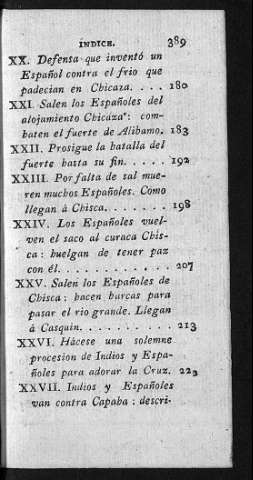 ÍNDICE. 389
XX. Defensa que inventó un
Español contra el frio que
padecian en Chicaza. . . . 180
XXI. Salen los Españoles del
alojamiento Chicaza: com-
baten el fuerte de Alibamo. 183
XXII. Prosigue la batalla del
fuerte hasta su fin. . . . . . 192
XXIII. Por falta de sal mue-
ren muchos Españoles. Como
llegan á Chisca. . . . . . . . 198
XXIV. Los Españoles vuel-
ven el saco al curaca Chis-
ca: huelgan de tener paz
con él. . . . . . . . . . . . . 207
XXV. Salen los Españoles de
Chisca: hacen barcas para
pasar el rio grande. Llegan
á Casquin. . . . . . . . . . . 213
XXVI. Hácese una solemne
procesion de Indios y Espa-
ñoles para adorar la Cruz. 223
XXVII. Indios y Españoles
van contra Capaha: descri-